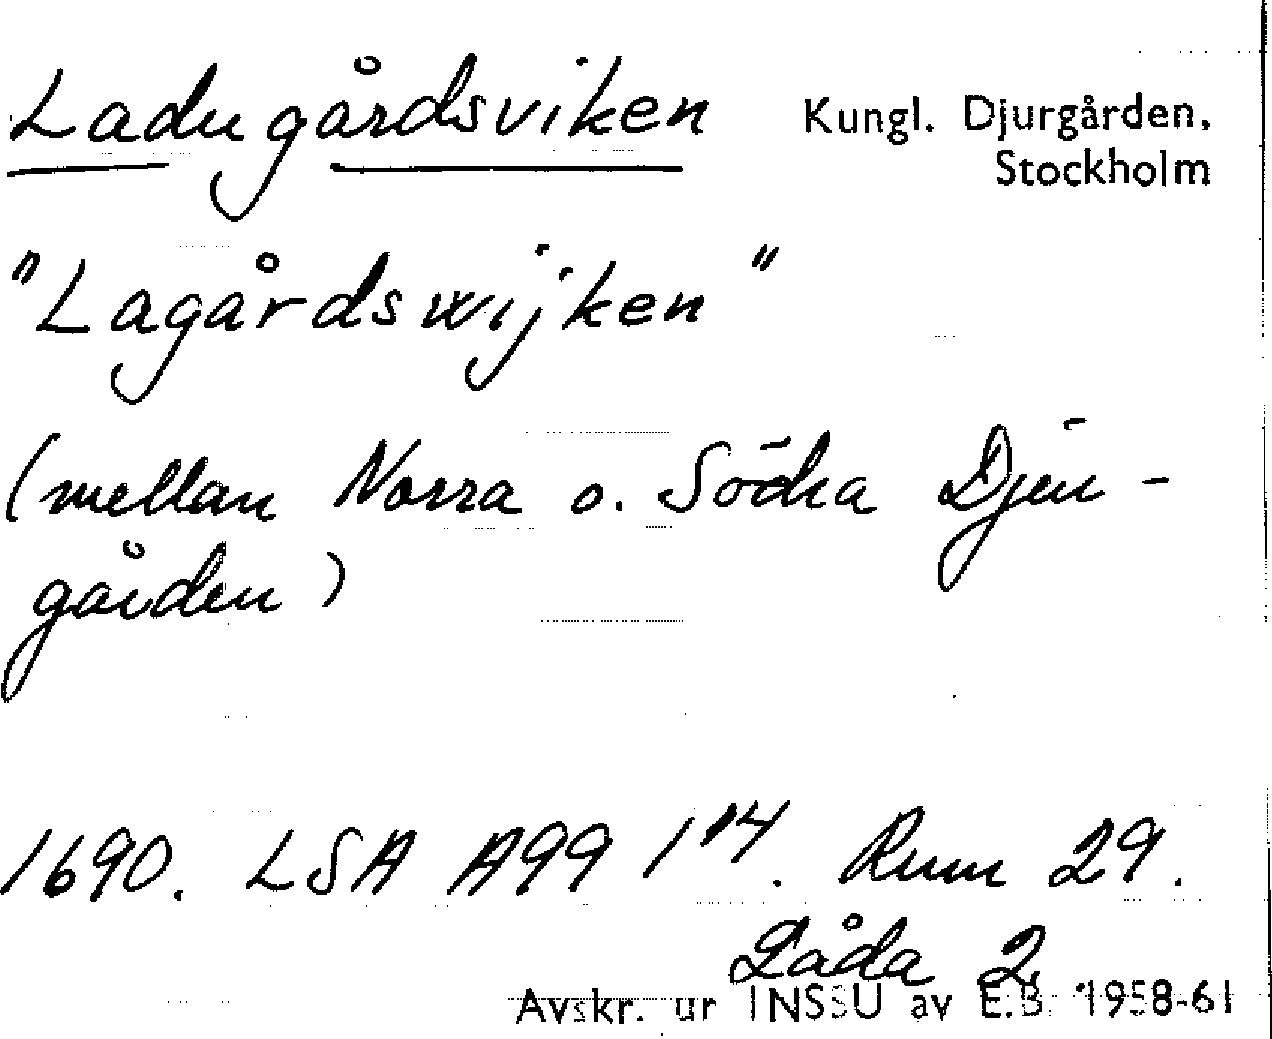 Ladugårdsviken Kungl. Djurgården,
Stockholm
"Lagårdswijken"
(mellan Norra o. Södra Djur-
gården)
1690. LSA A99 1"4. Rum 29.
Låda 2
Avskr. ur INSSU av E.B. 1958-61